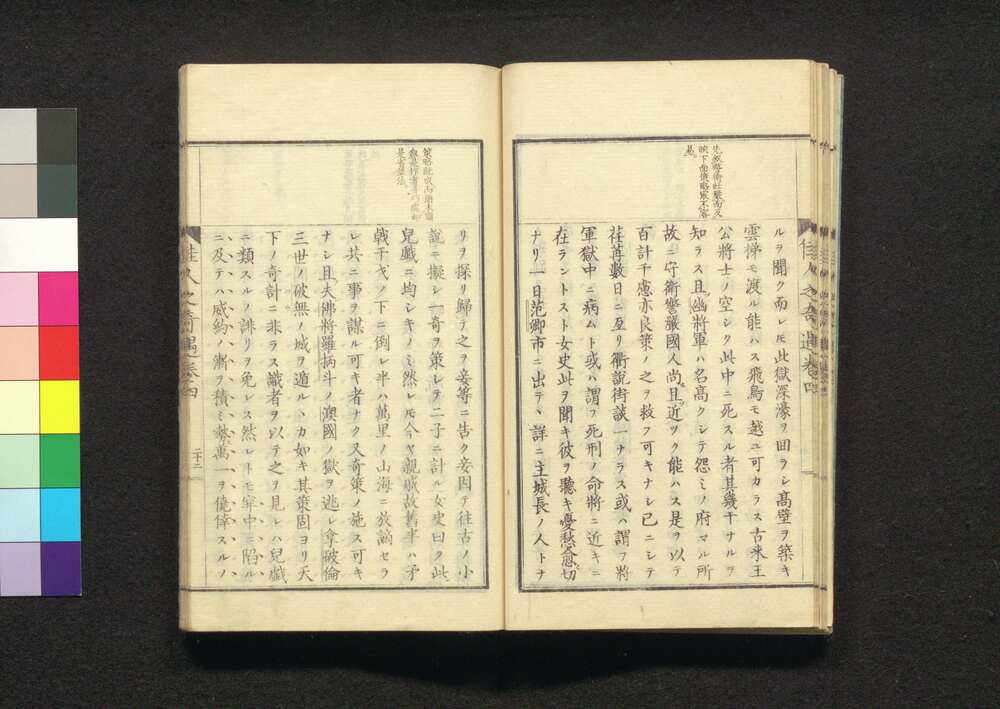 先敘警衛壯嚴而又
映下面俄略
是
ルヲ聞ク而レモ此獄深濠ヲ回ラシ高壁ヲ築キ
雲梯モ渡ル能ハス飛鳥モ越ユ可カラス古来王
公將士ノ空シク此中ニ死スル者其幾干ナルヲ
知ラス且幽將軍ハ名高クシテ怨ミノ府マル所
故ニ守衛警嚴國人尚且近ツク能ハス是ヲ以テ
百計千慮亦良策ノ之ヲ救フ可キナシ已ニシテ
荏苒數日ニ至リ衢說街談一ナラス或ハ謂フ將
軍獄中ニ病ムト或ハ謂フ死刑ノ命將ニ近キニ
在ラントスト女史此ヲ聞キ彼ヲ聽キ憂愁益切
ナリ一日范卿市ニ出テヽ詳ニ主城長ノ人トナ
佳人之奇遇卷四
リヲ探リ歸テ之ヲ妾等ニ告ク妾因テ往古ノ小
說ニ擬シ一奇ヲ策シテ二子ニ計ル女史曰ク此
兒戲ニ均シキノミ然レモ今ヤ親戚故舊半ハ矛
戟干戈ノ下ニ倒レ半ハ萬里ノ山海ニ放謫セラ
レ共ニ事ヲ謀ル可キ者ナク又奇策ノ施ス可キ
ナシ且夫佛將羅柄斗ノ澳國ノ獄ヲ逃レ拿破倫
三世ノ破無ノ城ヲ遁ルヽカ如キ其策固ヨリ天
下ノ奇計ニ非ラス識者ヲ以テ之ヲ見レハ兒戲
ニ類スルノ誹リヲ免レス然レトモ穽中ニ陷ル
ニ及テハ威約ノ漸ヲ積ミ萬一ヲ僥倖スルノ
佳人之奇遇卷四
二十二